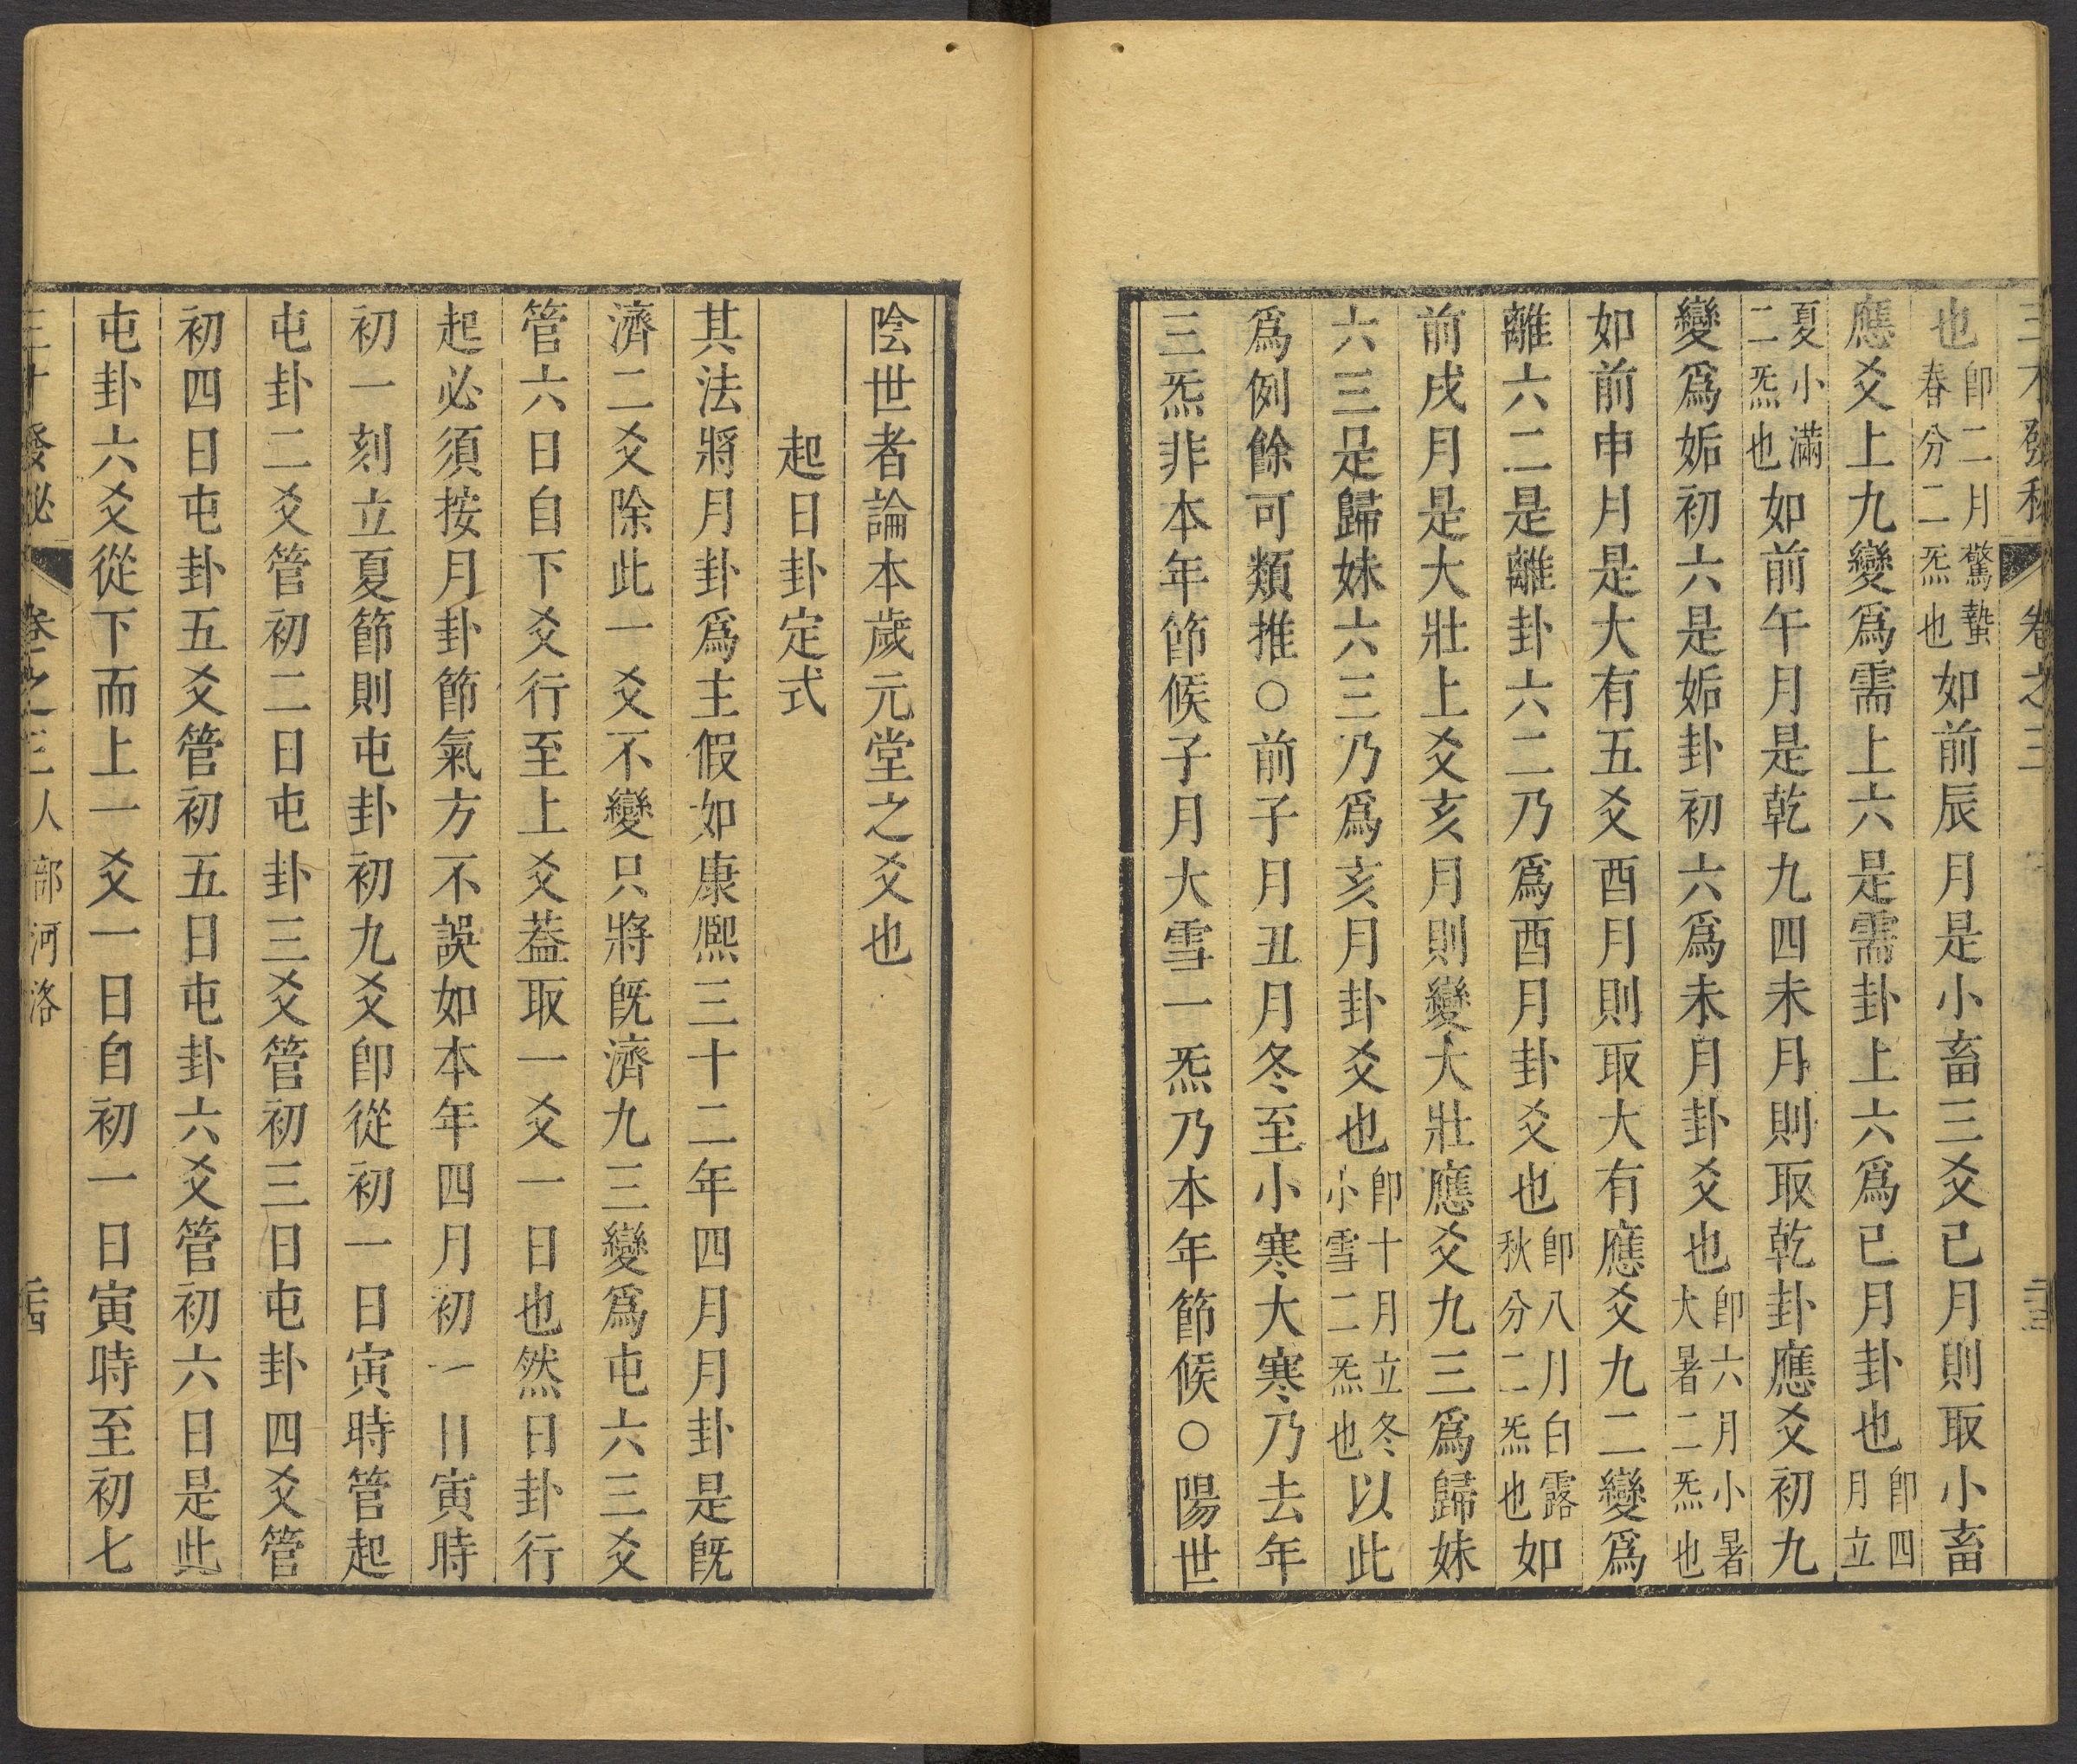 三才發秘 卷之三
也即二月驚蟄春分二炁也如前辰月是小畜三爻已月則取小畜
應爻上九變爲需上六是需卦上六爲已月卦也即四月立
夏小滿二炁也如前午月是乾九四未月則取乾卦應爻初九
變爲姤初六是姤卦初六爲未月卦爻也即六月小暑大暑二炁也
如前申月是大有五爻酉月則取大有應爻九二變爲
離六二是離卦六二乃爲酉月卦爻也即八月白露秋分二炁也如
前戌月是大壯上爻亥月則變大壯應爻九三爲歸妹
六三是歸妹六三乃爲亥月卦爻也即十月立冬小雪二炁也以此
爲例餘可類推○前子月丑月冬至小寒大寒乃去年
三炁非本年節候子月大雪一炁乃本年節候○陽世
陰世者論本歲元堂之爻也
起日卦定式
其法將月卦爲主假如康熙三十二年四月月卦是旣
濟二爻除此一爻不變只將旣濟九三變爲屯六三爻
管六日自下爻行至上爻葢取一爻一日也然日卦行
起必須按月卦節氣方不誤如本年四月初一日寅時
初一刻立夏節則屯卦初九爻卽從初一日寅時管起
屯卦二爻管初二日屯卦三爻管初三日屯卦四爻管
初四日屯卦五爻管初五日屯卦六爻管初六日是此
屯卦六爻從下而上一爻一日自初一日寅時至初七
三才發秘 卷之三人部河洛